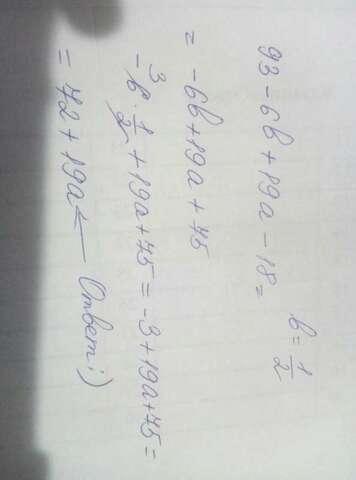 93 - 6b + 19a - 18 = b = 1/2
= -6b + 19a + 75
-6 · 1/2 + 19a + 75 = -3 + 19a + 75 =
3
= 72 + 19a ← Ответ :)